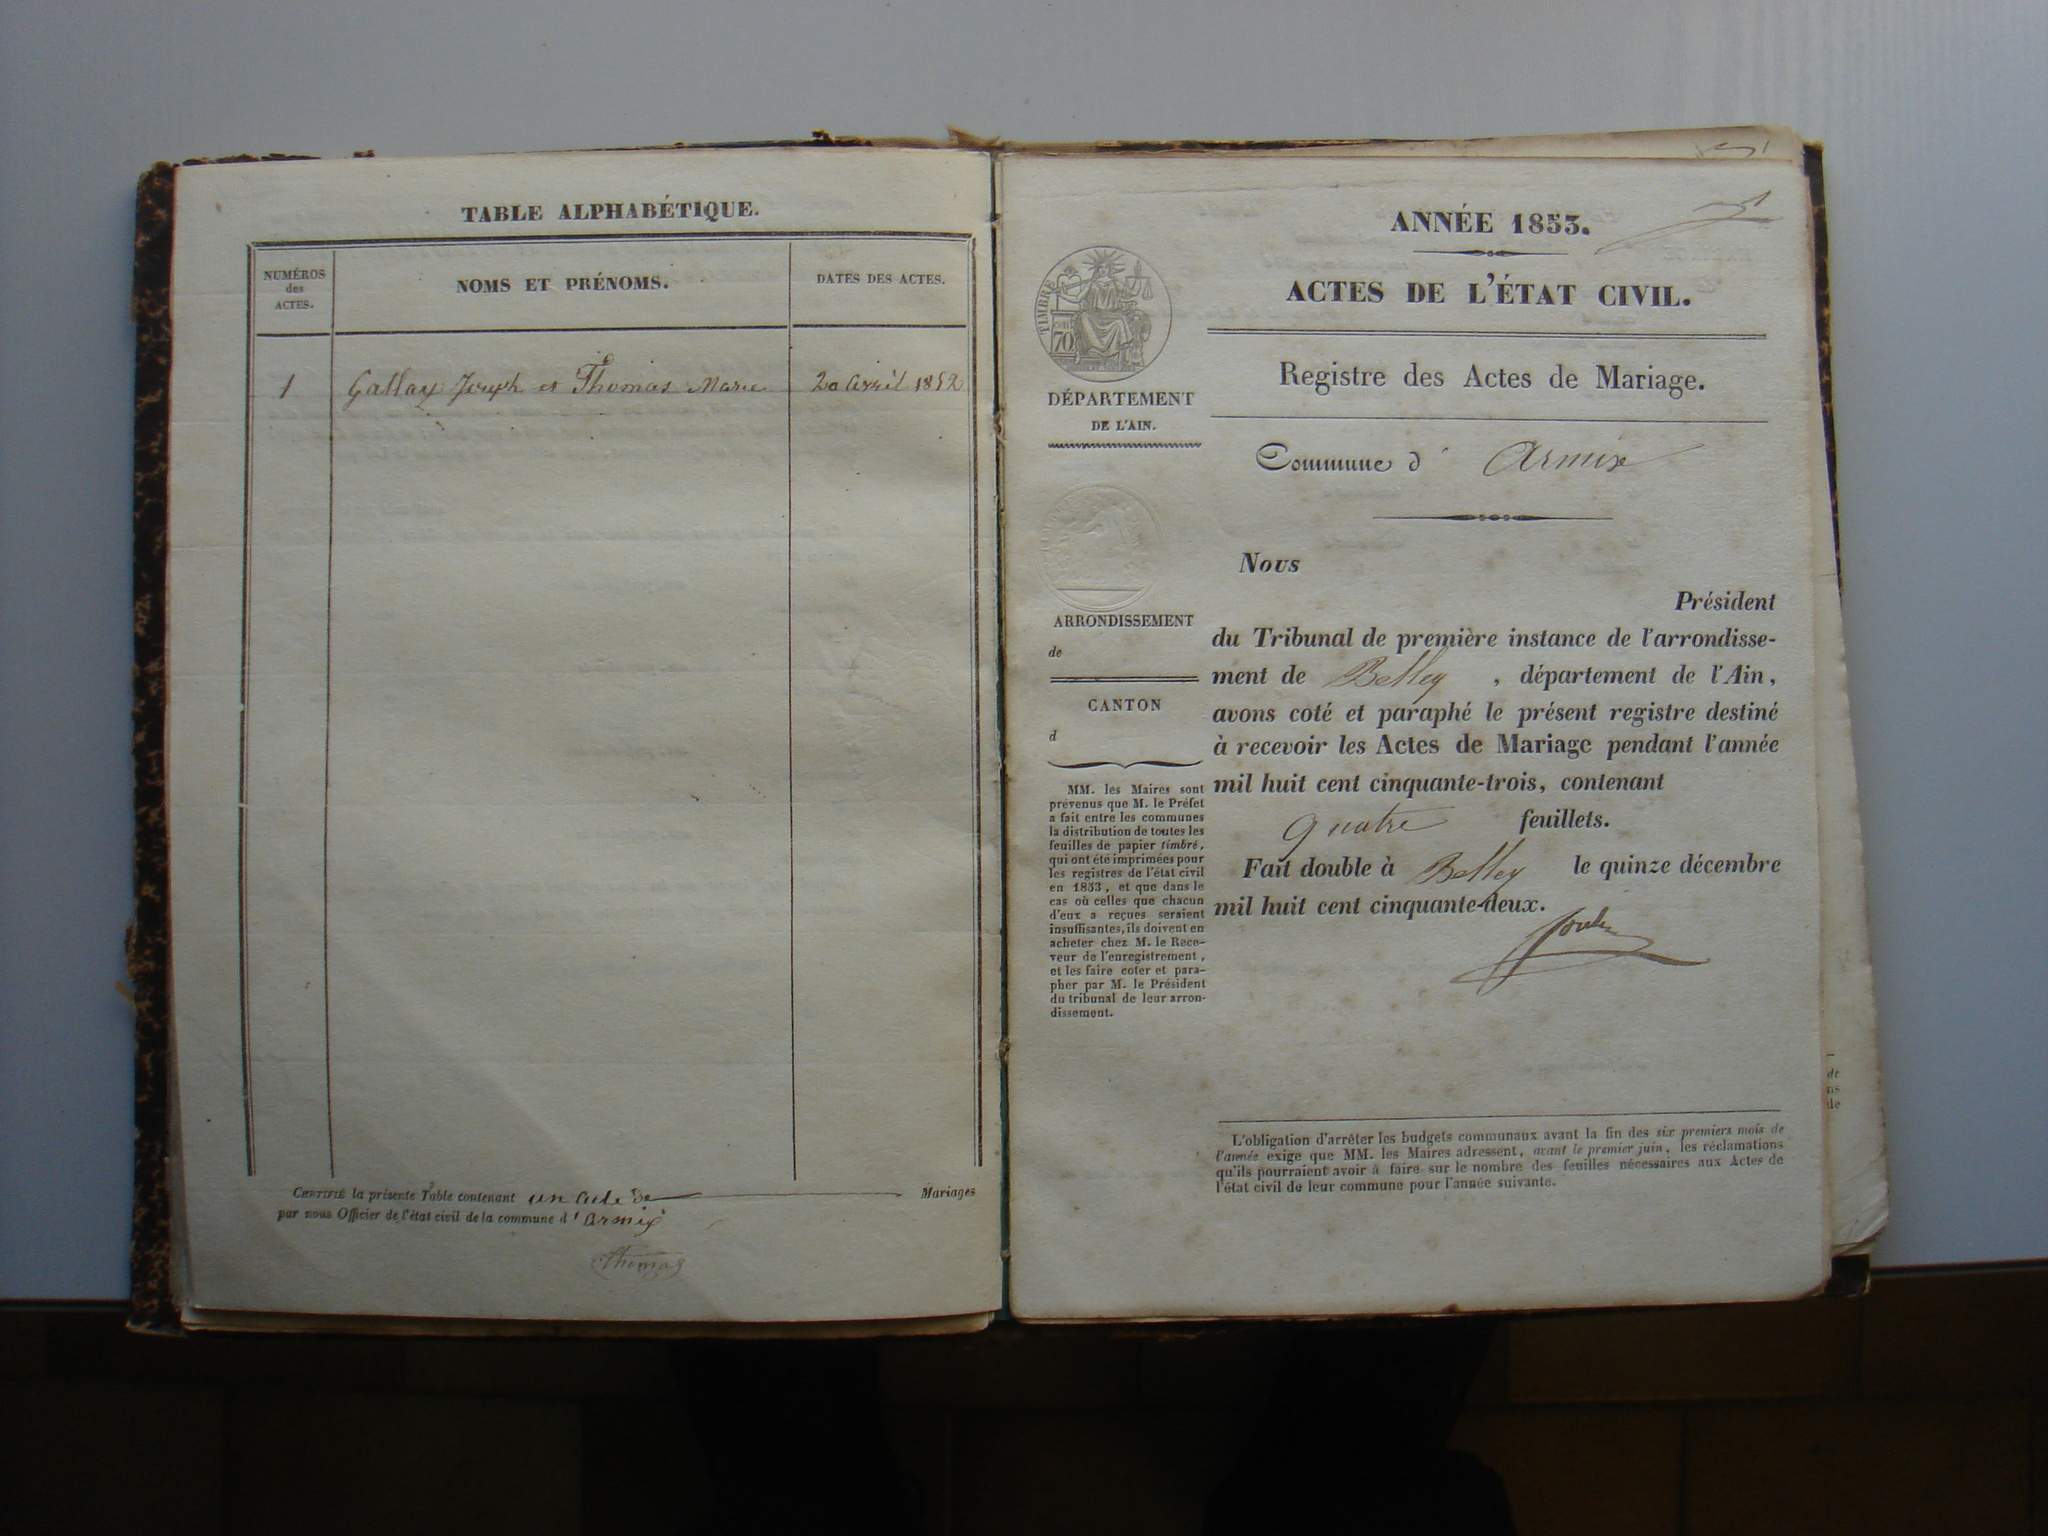 TABLE ALPHABÉTIQUE.
NUMÉROS
des
ACTES.
NOMS ET PRÉNOMS.
DATES DES ACTES.
1 Gallay Joseph et Thomas Marie 20 avril 1852
CERTIFIÉ la présente Table contenant un acte de Mariages
par nous Officier de l'état civil de la commune d'armix
Thomas
ANNÉE 1853.
ACTES DE L'ÉTAT CIVIL.
Registre des Actes de Mariage.
Commune d' Armix
TIMBRE
70
DÉPARTEMENT
DE L'AIN.
ARRONDISSEMENT
de
CANTON
d
MM. les Maires sont
prévenus que M. le Préfet
a fait entre les communes
la distribution de toutes les
feuilles de papier timbré,
qui ont été imprimées pour
les registres de l'état civil
en 1853, et que dans le
cas où celles que chacun
d'eux a reçues seraient
insuffisantes, ils doivent en
acheter chez M. le Rece-
veur de l'enregistrement,
et les faire coter et para-
pher par M. le Président
du tribunal de leur arron-
dissement.
Nous
Président
du Tribunal de première instance de l'arrondisse-
ment de Belley, département de l'Ain,
avons coté et paraphé le présent registre destiné
à recevoir les Actes de Mariage pendant l'année
mil huit cent cinquante-trois, contenant
quatre feuillets.
Fait double à Belley le quinze décembre
mil huit cent cinquante-deux.
L'obligation d'arrêter les budgets communaux avant la fin des six premiers mois de
l'année exige que MM. les Maires adressent, avant le premier juin, les réclamations
qu'ils pourraient avoir à faire sur le nombre des feuilles nécessaires aux Actes de
l'état civil de leur commune pour l'année suivante.